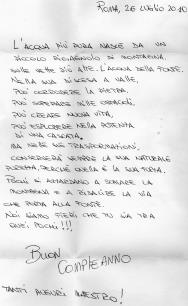 ROMA, 26 LUGLIO 2010
L'ACQUA PIÙ PURA NASCE DA UN
PICCOLO RIGAGNOLO DI MONTAGNA,
NELLE VETTE PIÙ ALTE. L'ACQUA DELLA FONTE.
NELLA SUA DISCESA A VALLE,
PUÒ CORRODERE LA PIETRA,
PUÒ SUPERARE MILLE OSTACOLI,
PUÒ CREARE NUOVA VITA,
PUÒ ESPLODERE NELLA POTENZA
DI UNA CASCATA.
MA NELLE TRASFORMAZIONI,
CONSERVERÀ SEMPRE LA SUA NATURALE
PUREZZA, PERCHÉ QUELLA È LA SUA FORZA.
POCHI SI AZZARDANO A SCALARE LA
MONTAGNA E A RISALIRE LA VIA
CHE PORTA ALLA FONTE.
NOI SIAMO FIERI CHE TU SIA TRA
QUEI POCHI!!!
BUON
COMPLEANNO
TANTI AUGURI MAESTRO!